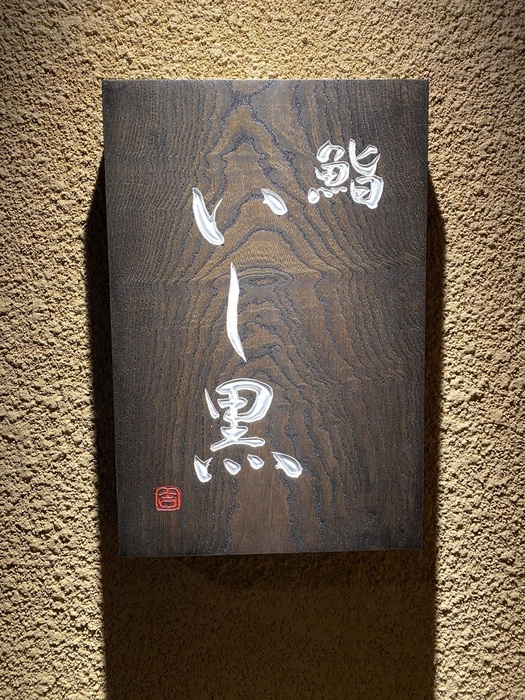 鮨
いし黒